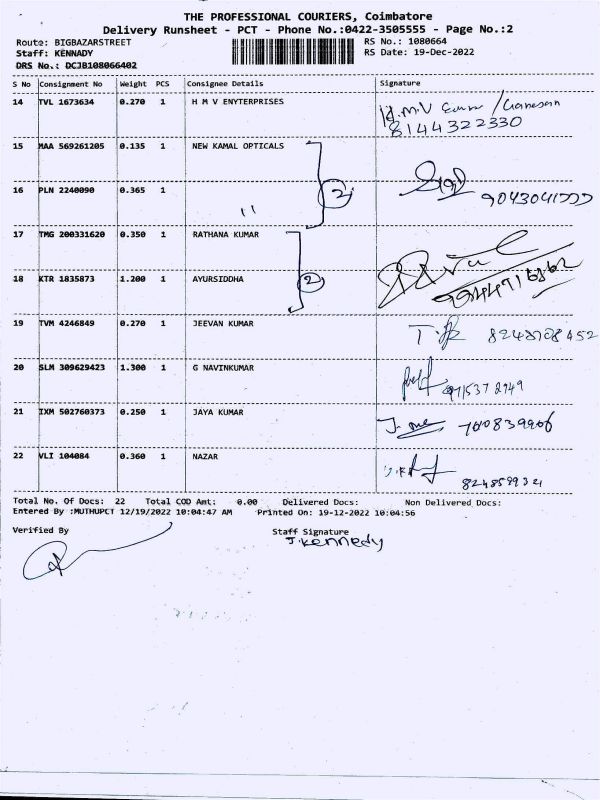 THE PROFESSIONAL COURIERS, Coimbatore
Delivery Runsheet - PCT - Phone No.:0422-3505555 - Page No.:2
Route: BIGBAZARSTREET RS No.: 1080664
Staff: KENNADY RS Date: 19-Dec-2022
DRS No.: DCJB108066402
S No Consignment No Weight PCS Consignee Details Signature
14 TVL 1673634 0.270 1 H M V ENYTERPRISES
8144322330
15 MAA 569261205 0.135 1 NEW KAMAL OPTICALS
16 PLN 2240090 0.365 1 2
17 TMG 200331620 0.350 1 RATHANA KUMAR
18 KTR 1835873 1.200 1 AYURSIDDHA 2
19 TVM 4246849 0.270 1 JEEVAN KUMAR
20 SLM 309629423 1.300 1 G NAVINKUMAR
21 IXM 502760373 0.250 1 JAYA KUMAR
22 VLI 104084 0.360 1 NAZAR
Total No. Of Docs: 22 Total COD Amt: 0.00 Delivered Docs: Non Delivered Docs:
Entered By :MUTHUPCT 12/19/2022 10:04:47 AM Printed On: 19-12-2022 10:04:56
Verified By Staff Signature
J.Kennedy